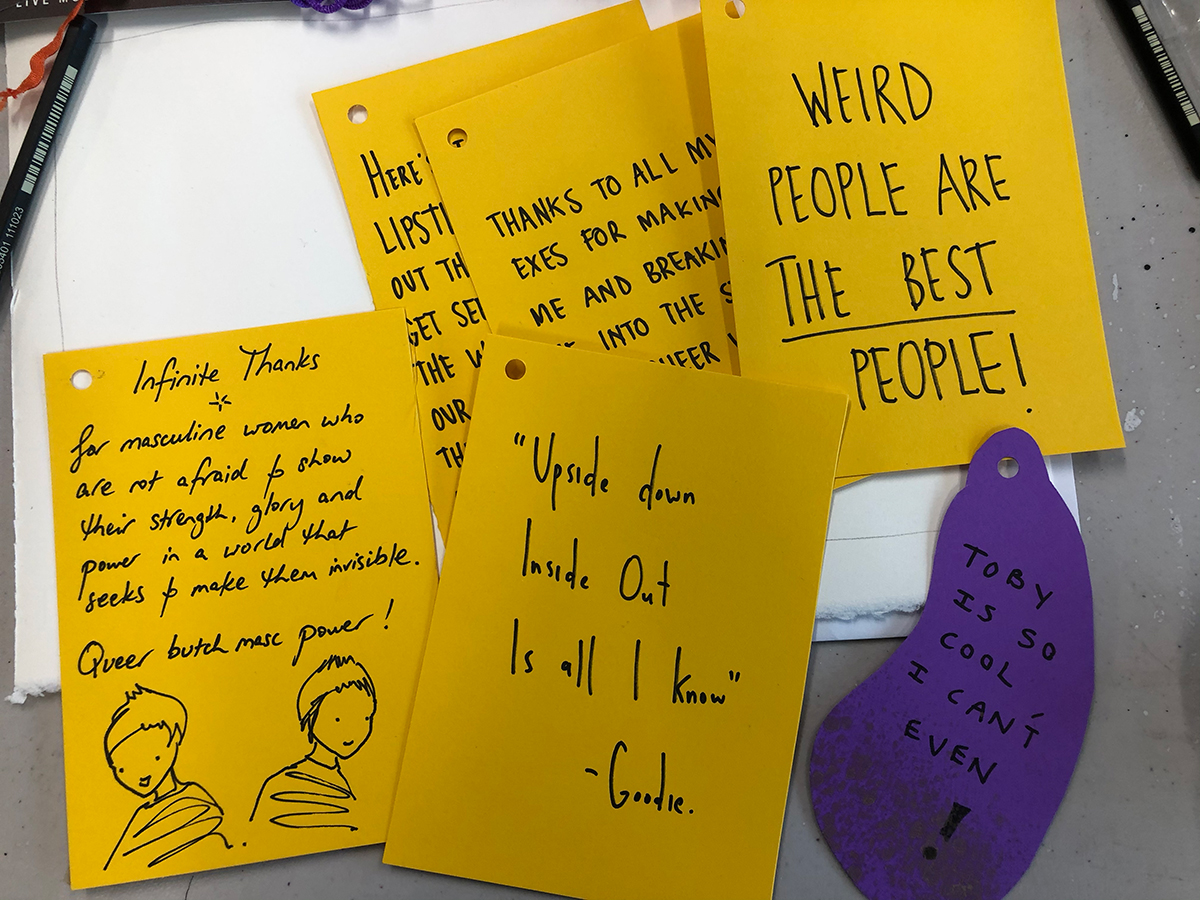 LIVE
03401 111023
HERE'S
LIPSTI
OUT TH
GET SE
THE W
OUR
TH
THANKS TO ALL MY
EXES FOR MAKING
ME AND BREAKIN
INTO THE S
UEER
WEIRD
PEOPLE ARE
THE BEST
PEOPLE!
Infinite Thanks
for masculine women who
are not afraid to show
their strength, glory and
power in a world that
seeks to make them invisible.
Queer butch masc power!
"Upside down
Inside Out
Is all I know"
-Goodie.
TOBY
IS SO
COOL
I CAN'T
EVEN
!